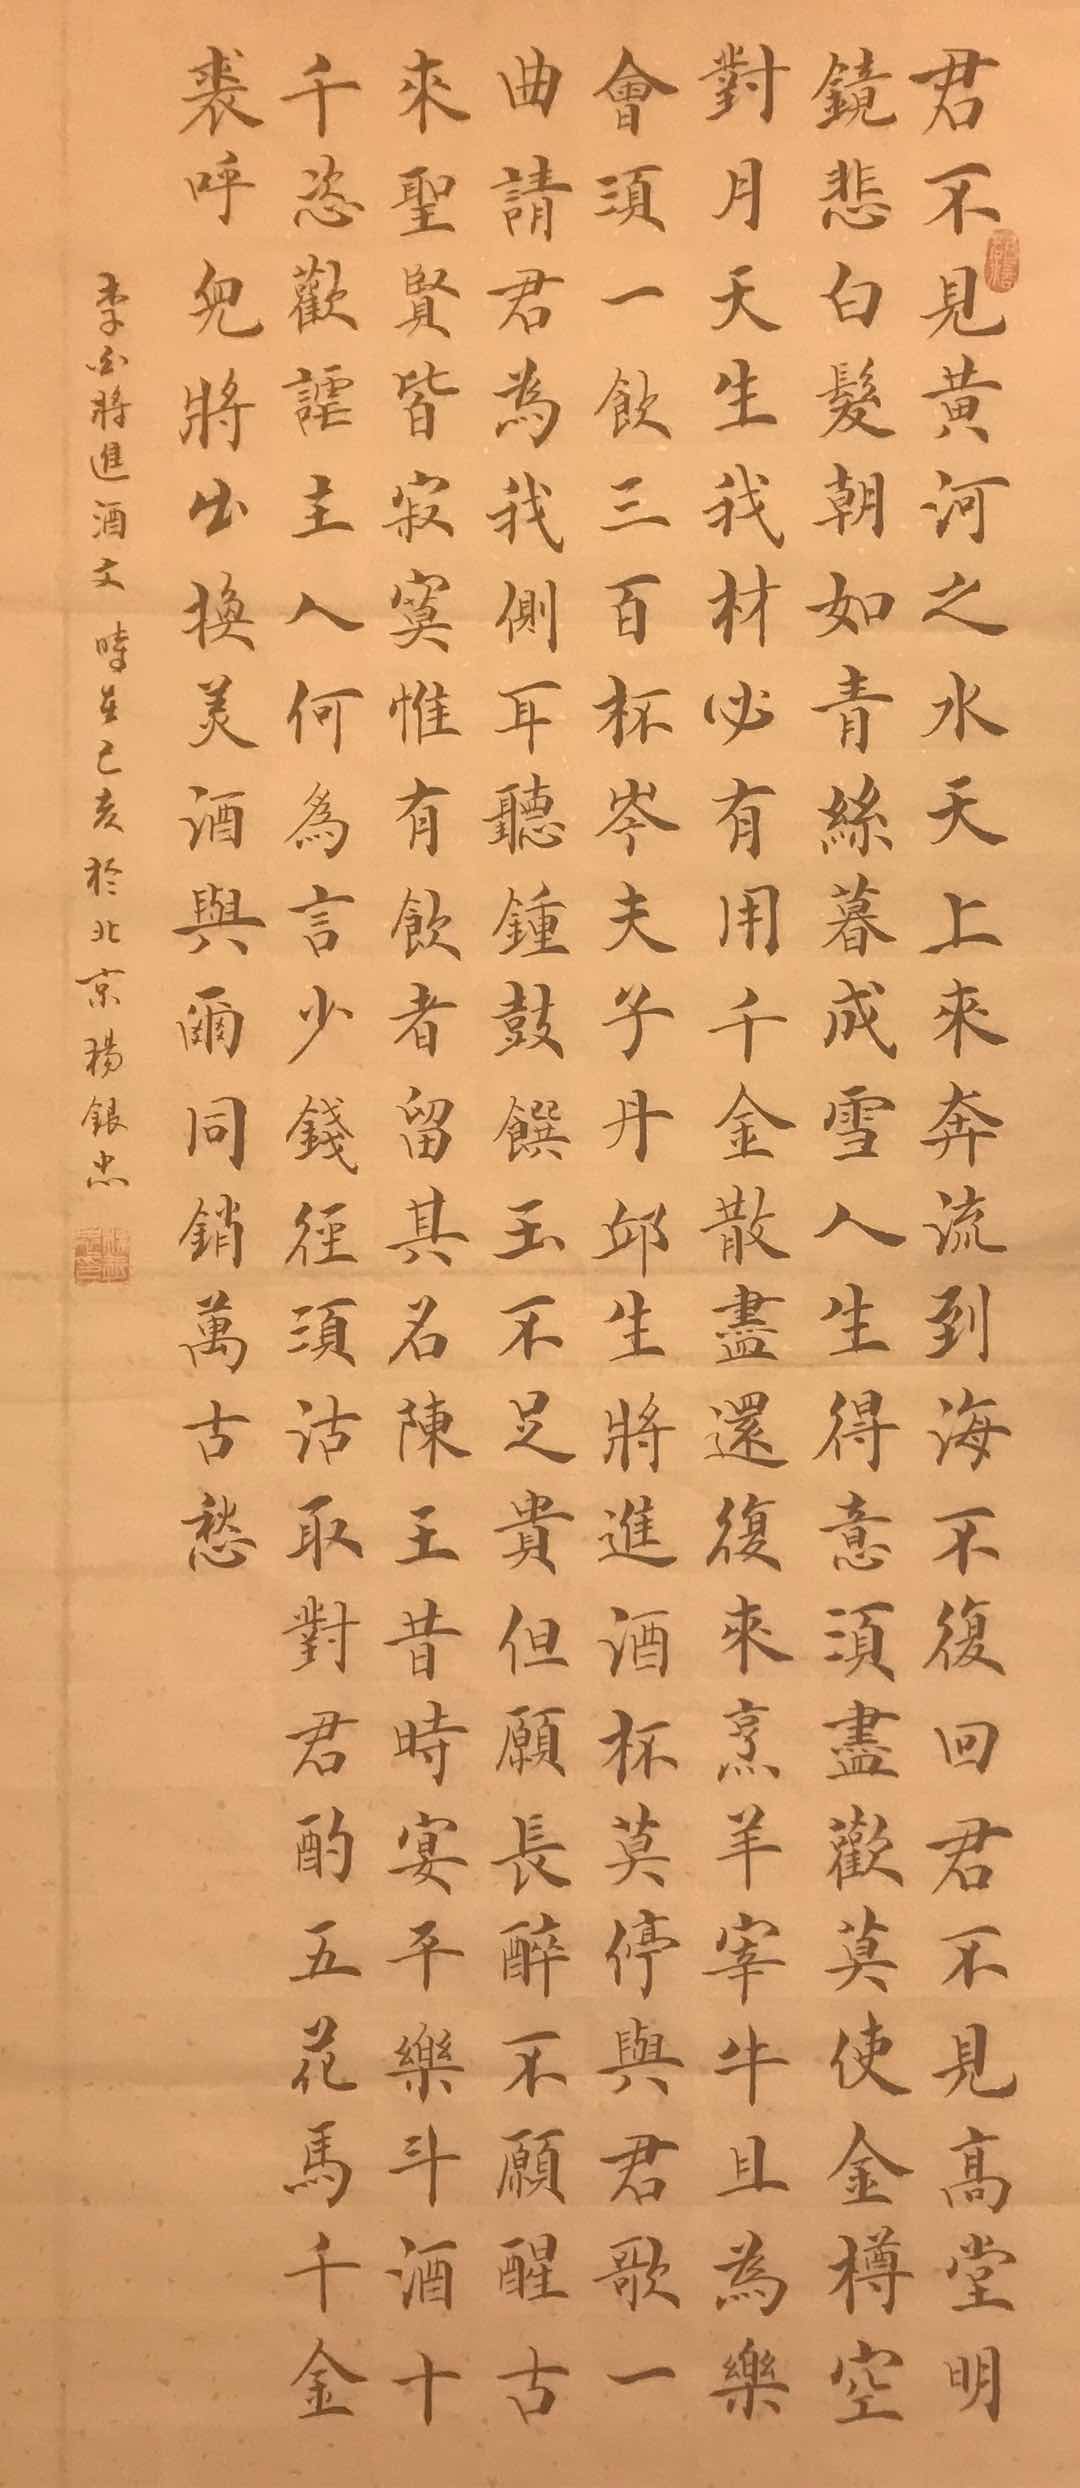 君不見黃河之水天上來奔流到海不復回君不見高堂明
鏡悲白髮朝如青絲暮成雪人生得意須盡歡莫使金樽空
對月天生我材必有用千金散盡還復來烹羊宰牛且為樂
會須一飲三百杯岑夫子丹邱生將進酒杯莫停與君歌一
曲請君為我側耳聽鍾鼓饌玉不足貴但願長醉不願醒古
來聖賢皆寂寞惟有飲者留其名陳王昔時宴平樂斗酒十
千恣歡謔主人何為言少錢徑須沽取對君酌五花馬千金
裘呼兒將出換美酒與爾同銷萬古愁
李白將進酒文 時在己亥於北京楊銀忠